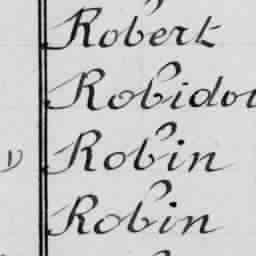 Robert
Robidou
Robin
Robin